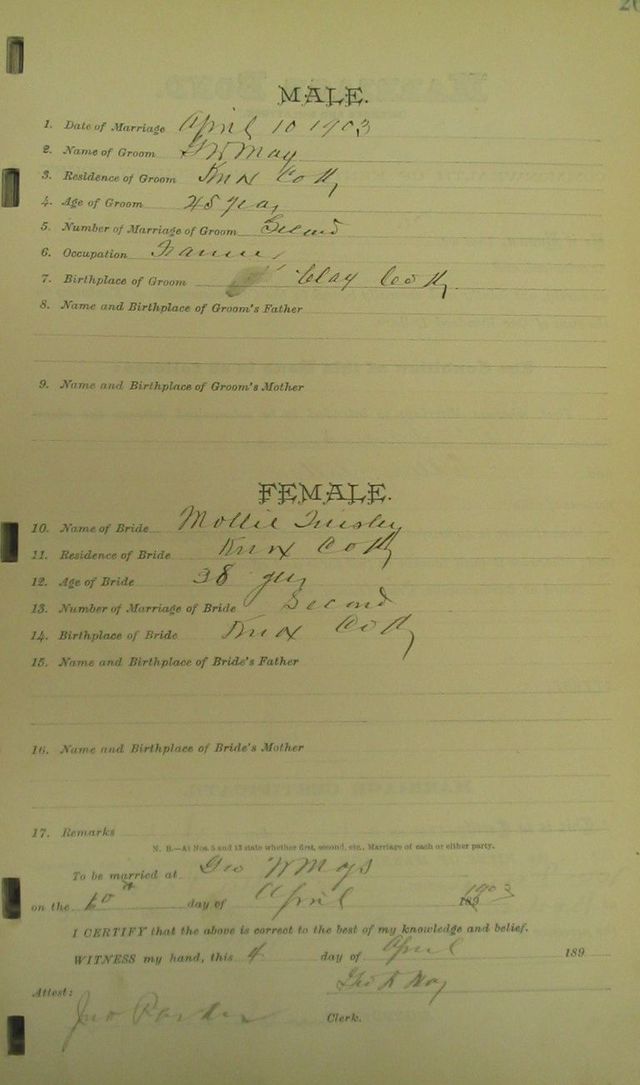 MALE.
1. Date of Marriage April 10 1903
2. Name of Groom G W May
3. Residence of Groom Knox Co Ky
4. Age of Groom 45 years
5. Number of Marriage of Groom Second
6. Occupation Farmer
7. Birthplace of Groom Clay Co Ky.
8. Name and Birthplace of Groom's Father
9. Name and Birthplace of Groom's Mother
FEMALE.
10. Name of Bride Mollie Tinsley
11. Residence of Bride Knox Co Ky
12. Age of Bride 38 yrs
13. Number of Marriage of Bride Second
14. Birthplace of Bride Knox Co Ky
15. Name and Birthplace of Bride's Father
16. Name and Birthplace of Bride's Mother
17. Remarks
N. B.—At Nos. 5 and 13 state whether first, second, etc., Marriage of each or either party.
To be married at Geo W Mays
on the 10th day of April 1903
I CERTIFY that the above is correct to the best of my knowledge and belief.
WITNESS my hand, this 4 day of April 189
Geo W May
Attest:
Jno Parker Clerk.